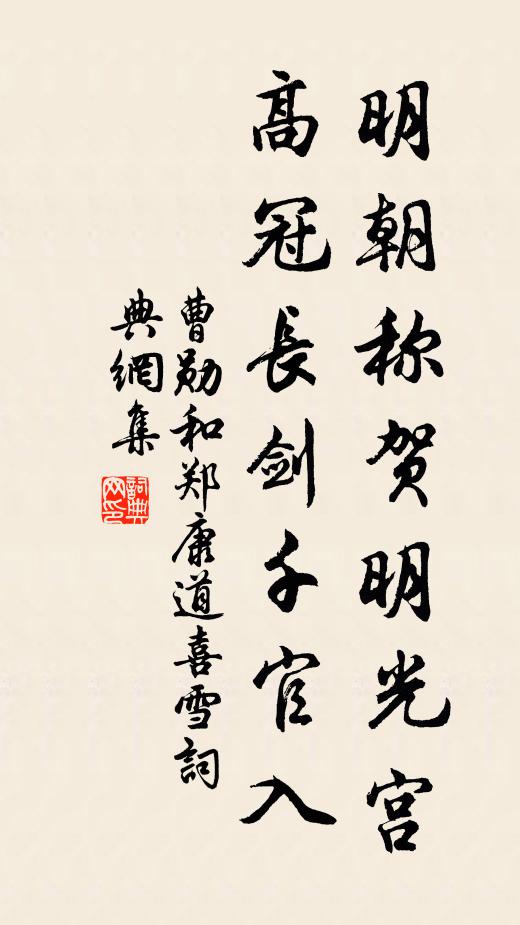 明朝称贺明光宫
高冠長剑千官入
曹勋和郑康道喜雪詞
典網集
詞典网印